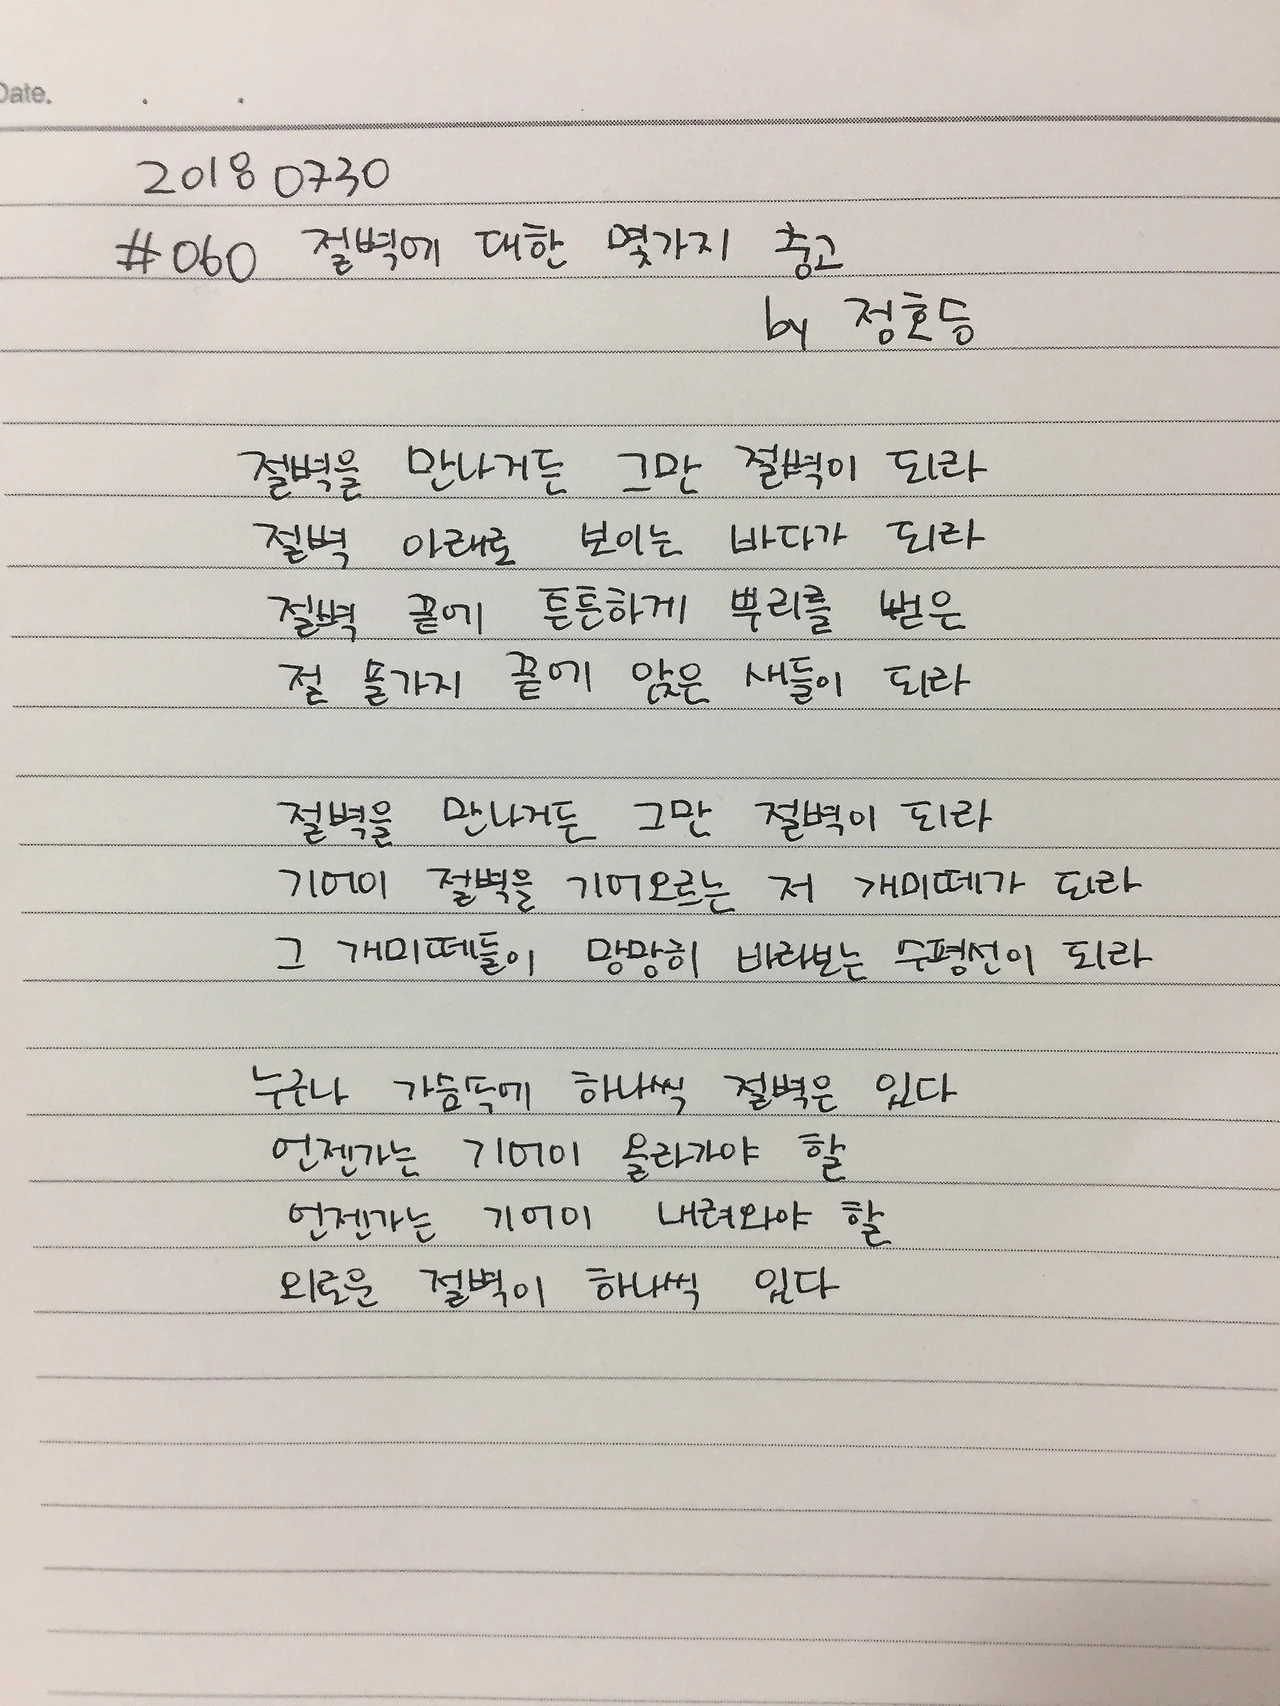 Date. . .
2018 0730
#060 절벽에 대한 몇가지 충고
by 정호승
절벽을 만나거든 그만 절벽이 되라
절벽 아래로 보이는 바다가 되라
절벽 끝에 튼튼하게 뿌리를 뻗은
절 솔가지 끝에 앉은 새들이 되라
절벽을 만나거든 그만 절벽이 되라
기어이 절벽을 기어오르는 저 개미떼가 되라
그 개미떼들이 망망히 바라보는 수평선이 되라
누구나 가슴속에 하나씩 절벽은 있다
언젠가는 기어이 올라가야 할
언젠가는 기어이 내려와야 할
외로운 절벽이 하나씩 있다